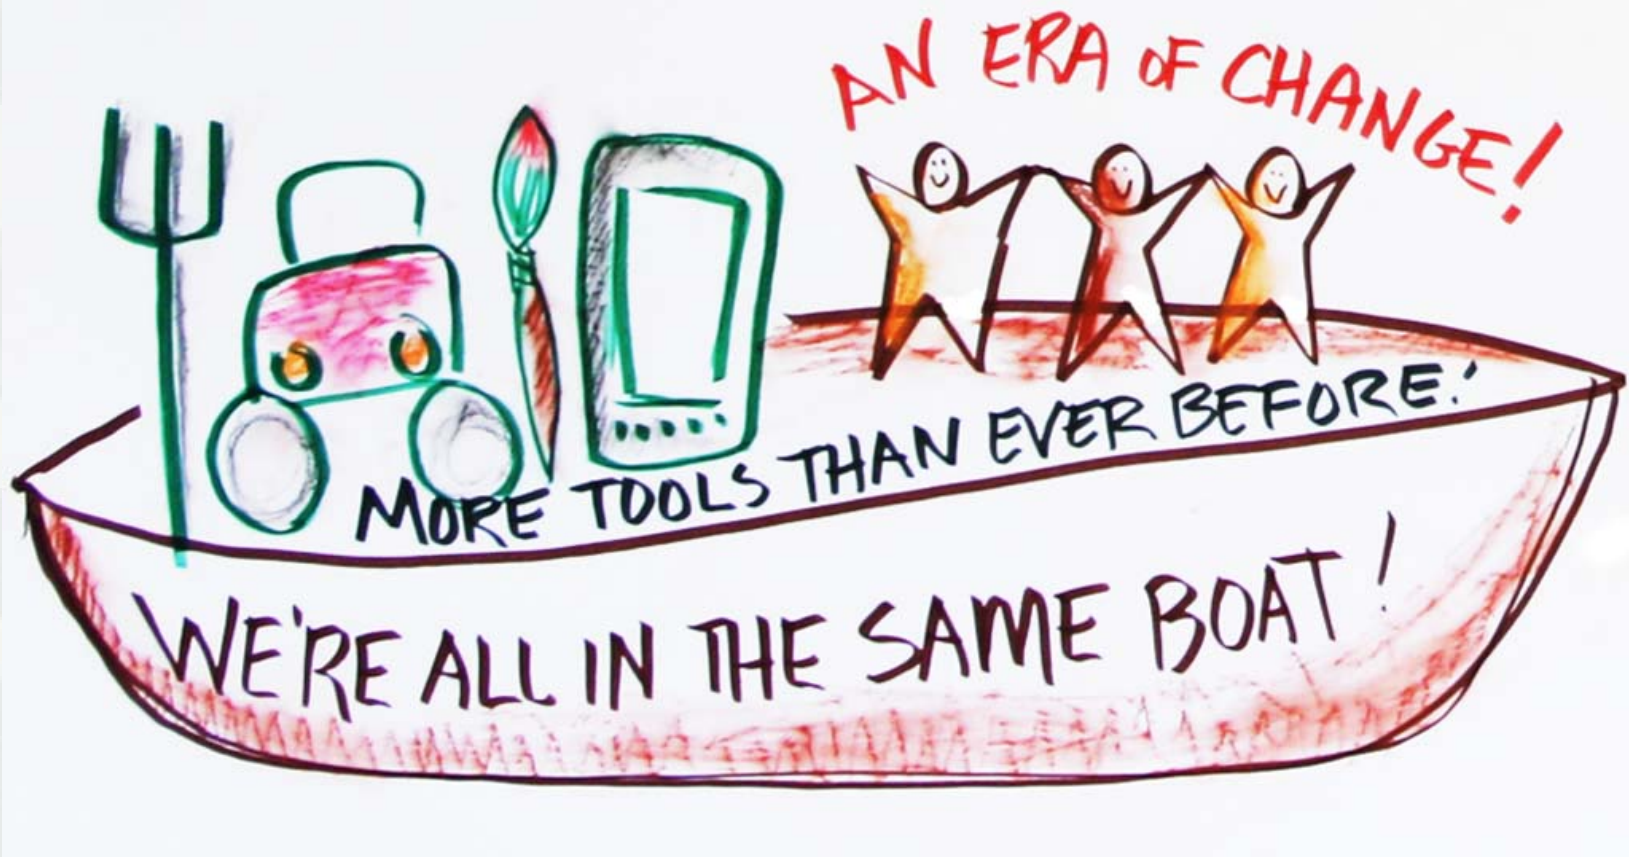 AN ERA OF CHANGE!
MORE TOOLS THAN EVER BEFORE!
WE'RE ALL IN THE SAME BOAT!